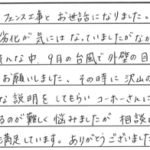 フェンス工事と お世話になりました。
劣化が気にはなっていましたがなか
んな中、9月の台風で外壁の目
お願いしました、その時に沢山の
な説明をしてもらい コーホーさんに
るのが難しく悩みましたが 相談
満足しています。ありがとうございました